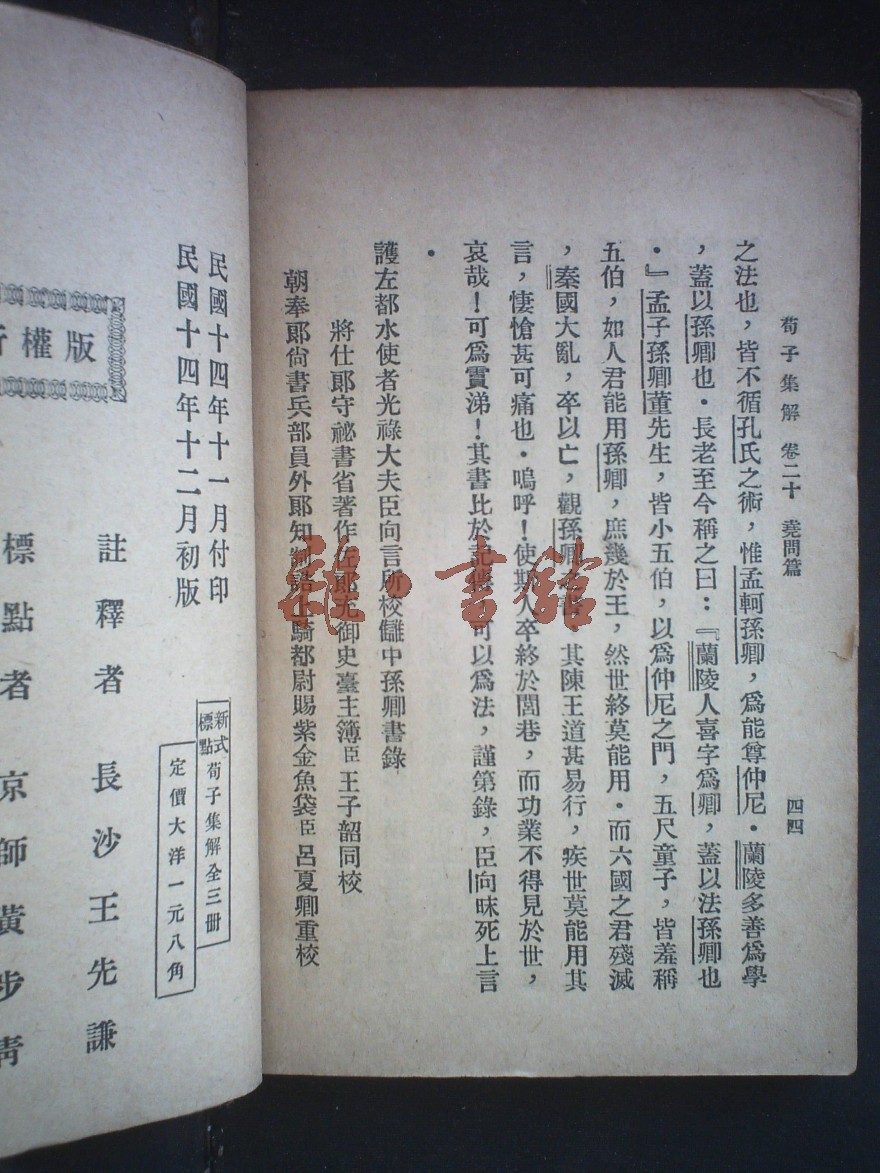 荀子集解 卷二十 堯問篇 四四
之法也，皆不循孔氏之術，惟孟軻孫卿，爲能尊仲尼．蘭陵多善爲學
，蓋以孫卿也．長老至今稱之曰：『蘭陵人喜字爲卿，蓋以法孫卿也
．』孟子孫卿董先生，皆小五伯，以爲仲尼之門，五尺童子，皆羞稱
五伯，如人君能用孫卿，庶幾於王，然世終莫能用．而六國之君殘滅
，秦國大亂，卒以亡，觀孫卿之書，其陳王道甚易行，疾世莫能用其
言，悽愴甚可痛也．嗚呼！使斯人卒終於閭巷，而功業不得見於世，
哀哉！可爲霣涕！其書比於記傳，可以爲法，謹第錄，臣向昧死上言
．
護左都水使者光祿大夫臣向言所校讎中孫卿書錄
將仕郞守祕書省著作佐郞充御史臺主簿臣王子韶同校
朝奉郞尙書兵部員外郞知制誥上騎都尉賜紫金魚袋臣呂夏卿重校
民國十四年十一月付印
民國十四年十二月初版
新式標點 荀子集解全三册
定價大洋一元八角
版權
註釋者 長沙王先謙
標點者 京師黃步靑
雅·書館